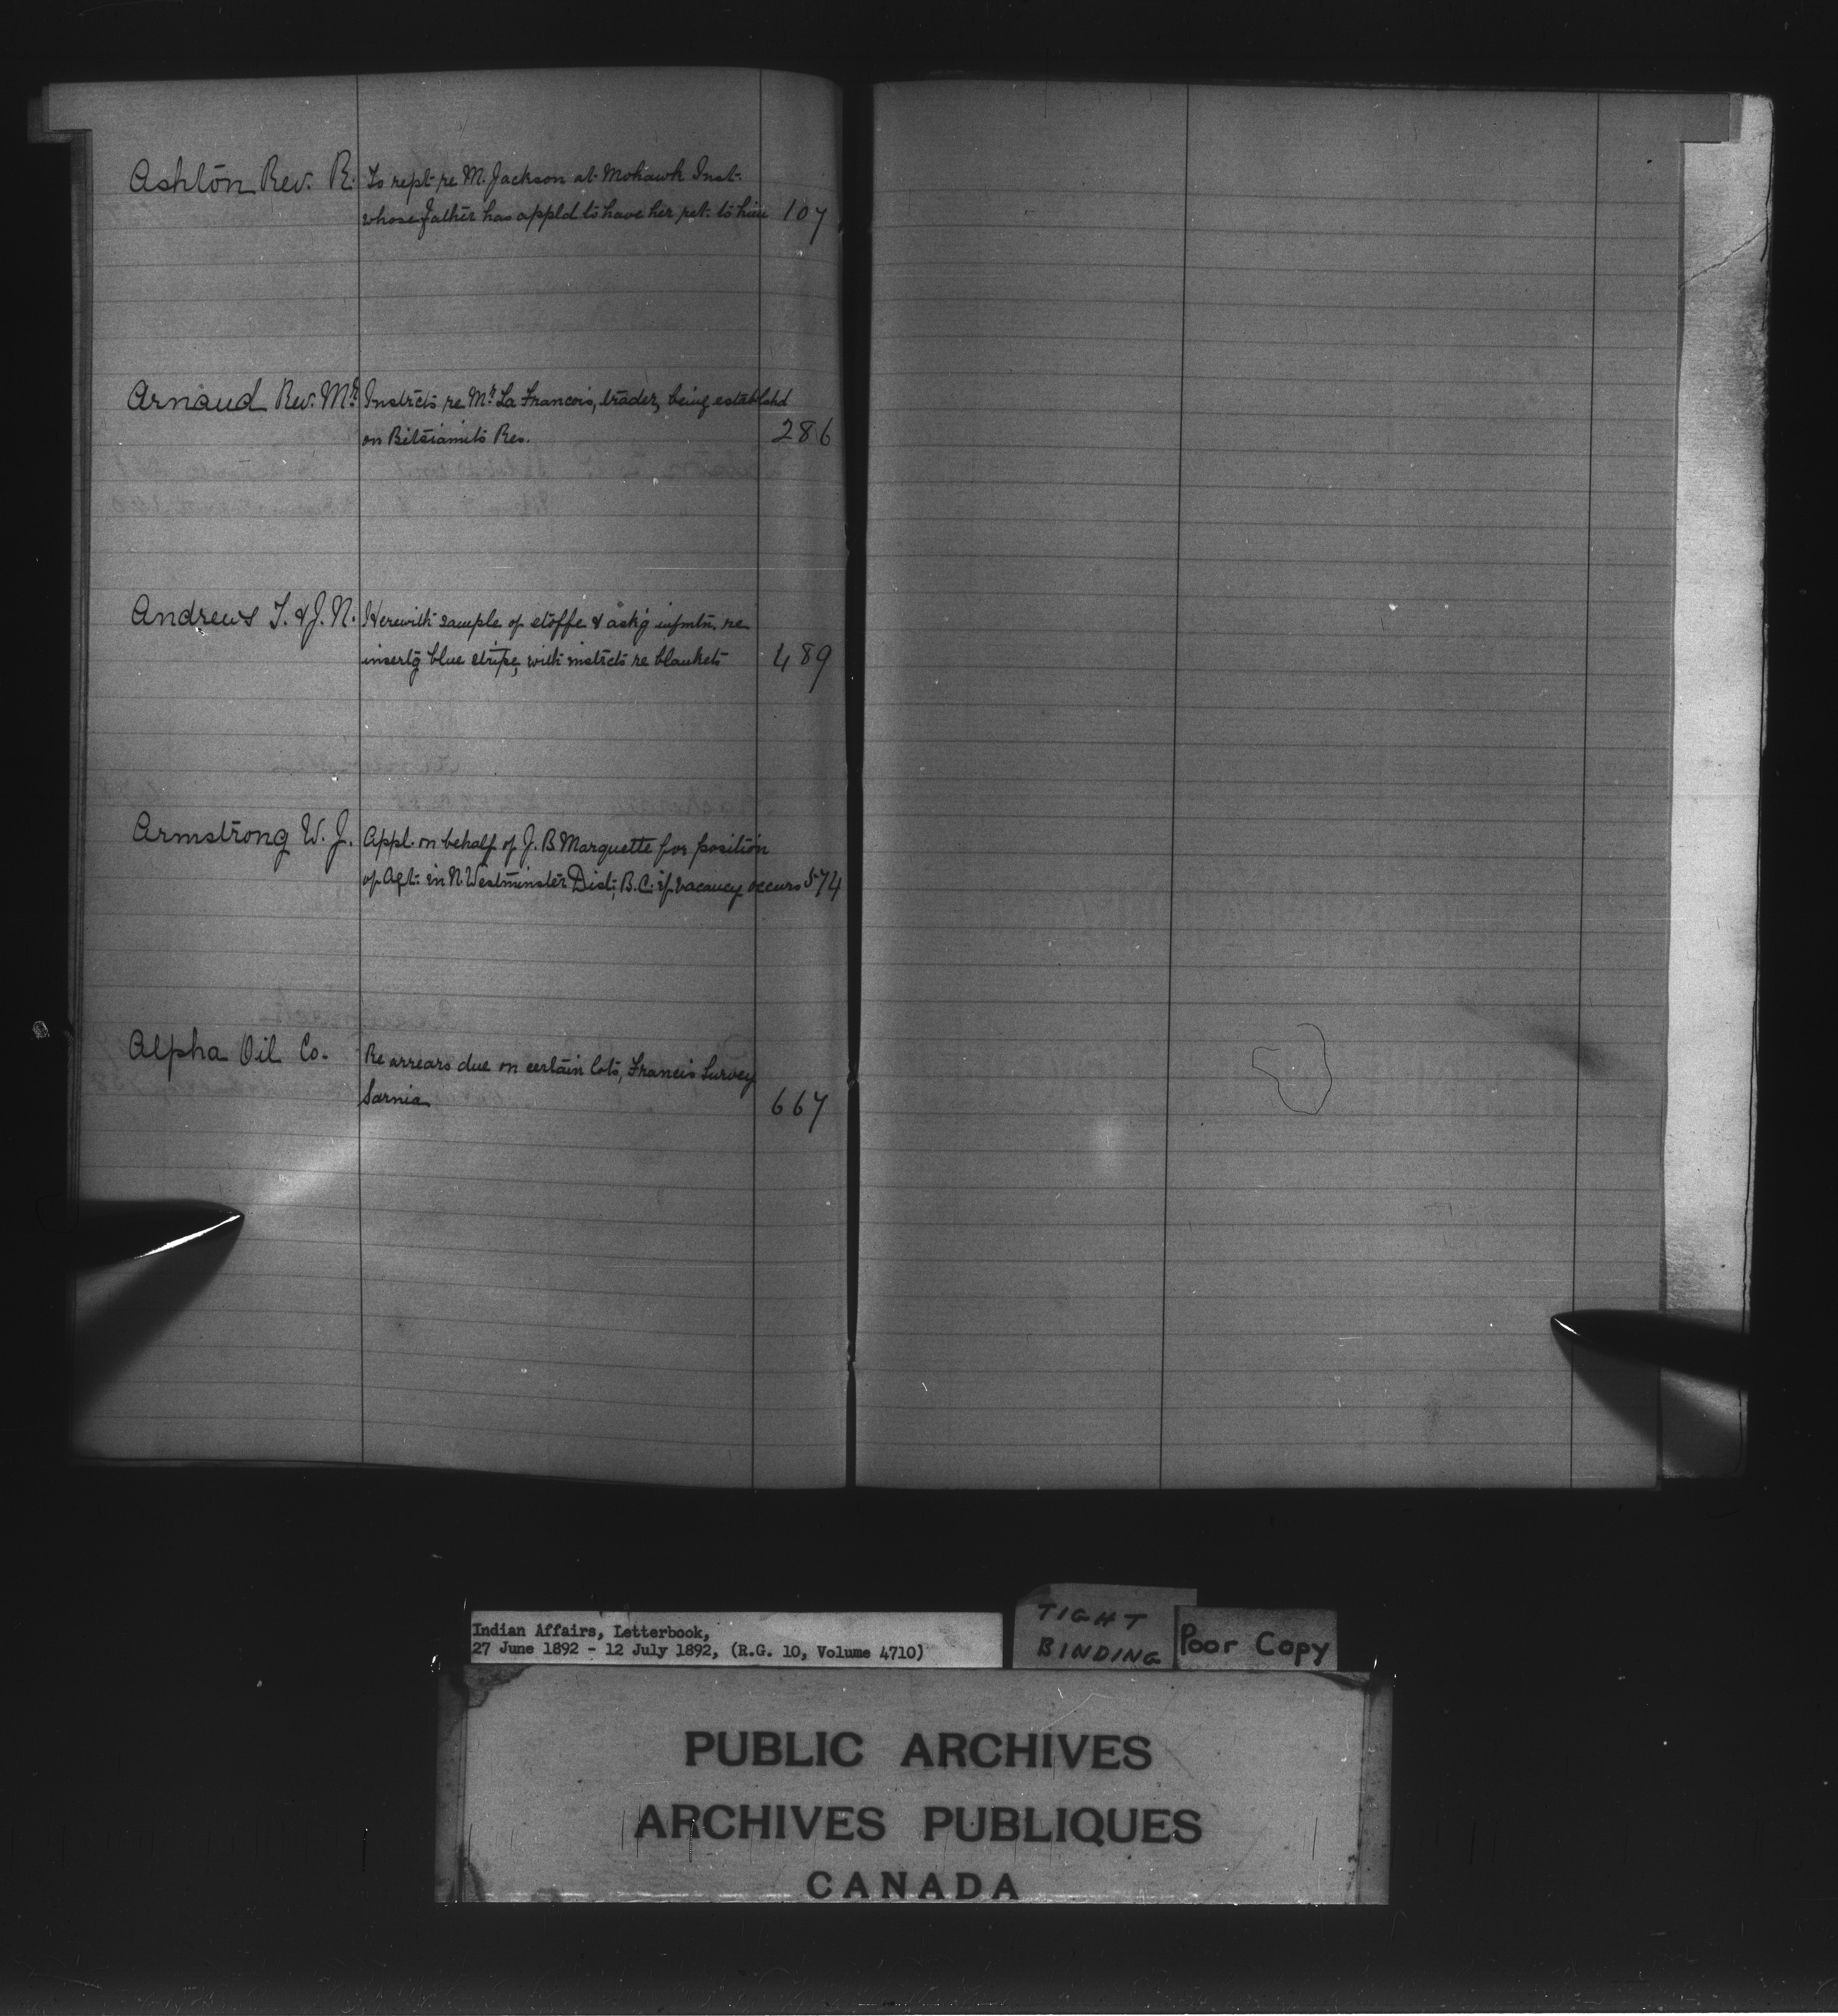 Ashton Rev. R. To rept re M. Jackson at Mohawk Inst.
whose father has appld to have her ret. to him 107
Arnaud Rev. Mr. Instrcts re Mr. La Francois, trader, being establshd
on Betsiamits Res. 286
Andrews T. & J. N. Herewith sample of etoffe & askg infmtn. re
insertg blue stripe, with instrcts re blankets 489
Armstrong W. J. Appl. on behalf of J. B. Marquette for position
of Agt. in N. Westminster Dist. B.C. if vacancy occurs 574
Alpha Oil Co. Re arrears due on certain lots, Francis Survey
Sarnia 667
Indian Affairs, Letterbook,
27 June 1892 - 12 July 1892, (R.G. 10, Volume 4710)
TIGHT
BINDING
Poor Copy
PUBLIC ARCHIVES
ARCHIVES PUBLIQUES
CANADA